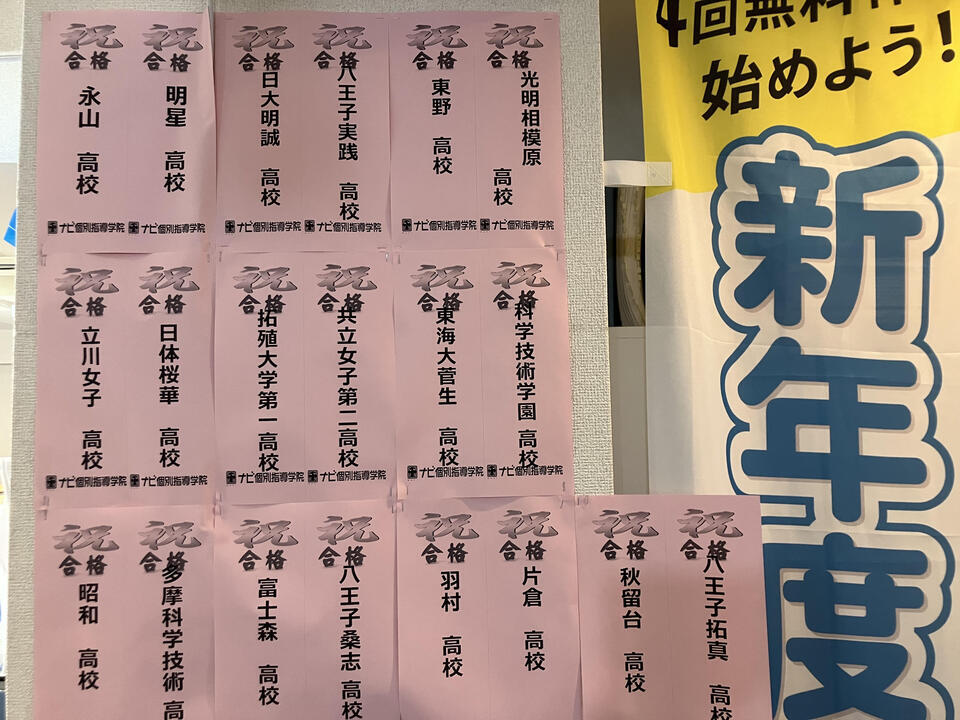 祝 合格
永山 高校
ナビ個別指導学院
祝 合格
明星 高校
ナビ個別指導学院
祝 合格
日大明誠 高校
ナビ個別指導学院
祝 合格
八王子実践 高校
ナビ個別指導学院
祝 合格
東野 高校
ナビ個別指導学院
祝 合格
光明相模原 高校
ナビ個別指導学院
祝 合格
立川女子 高校
ナビ個別指導学院
祝 合格
日体桜華 高校
ナビ個別指導学院
祝 合格
拓殖大学第一 高校
ナビ個別指導学院
祝 合格
共立女子第二高校
ナビ個別指導学院
祝 合格
東海大菅生 高校
ナビ個別指導学院
祝 合格
科学技術学園 高校
ナビ個別指導学院
祝 合格
昭和 高校
祝 合格
多摩科学技術 高
祝 合格
富士森 高校
祝 合格
八王子桑志 高校
祝 合格
羽村 高校
祝 合格
片倉 高校
祝 合格
秋留台 高校
祝 合格
八王子拓真 高校
4回無料
始めよう!
新年度